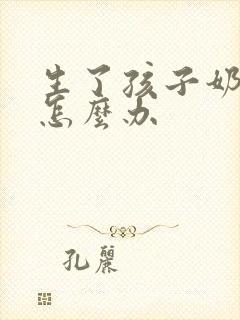 生了孩子奶
怎麼办
孔麗